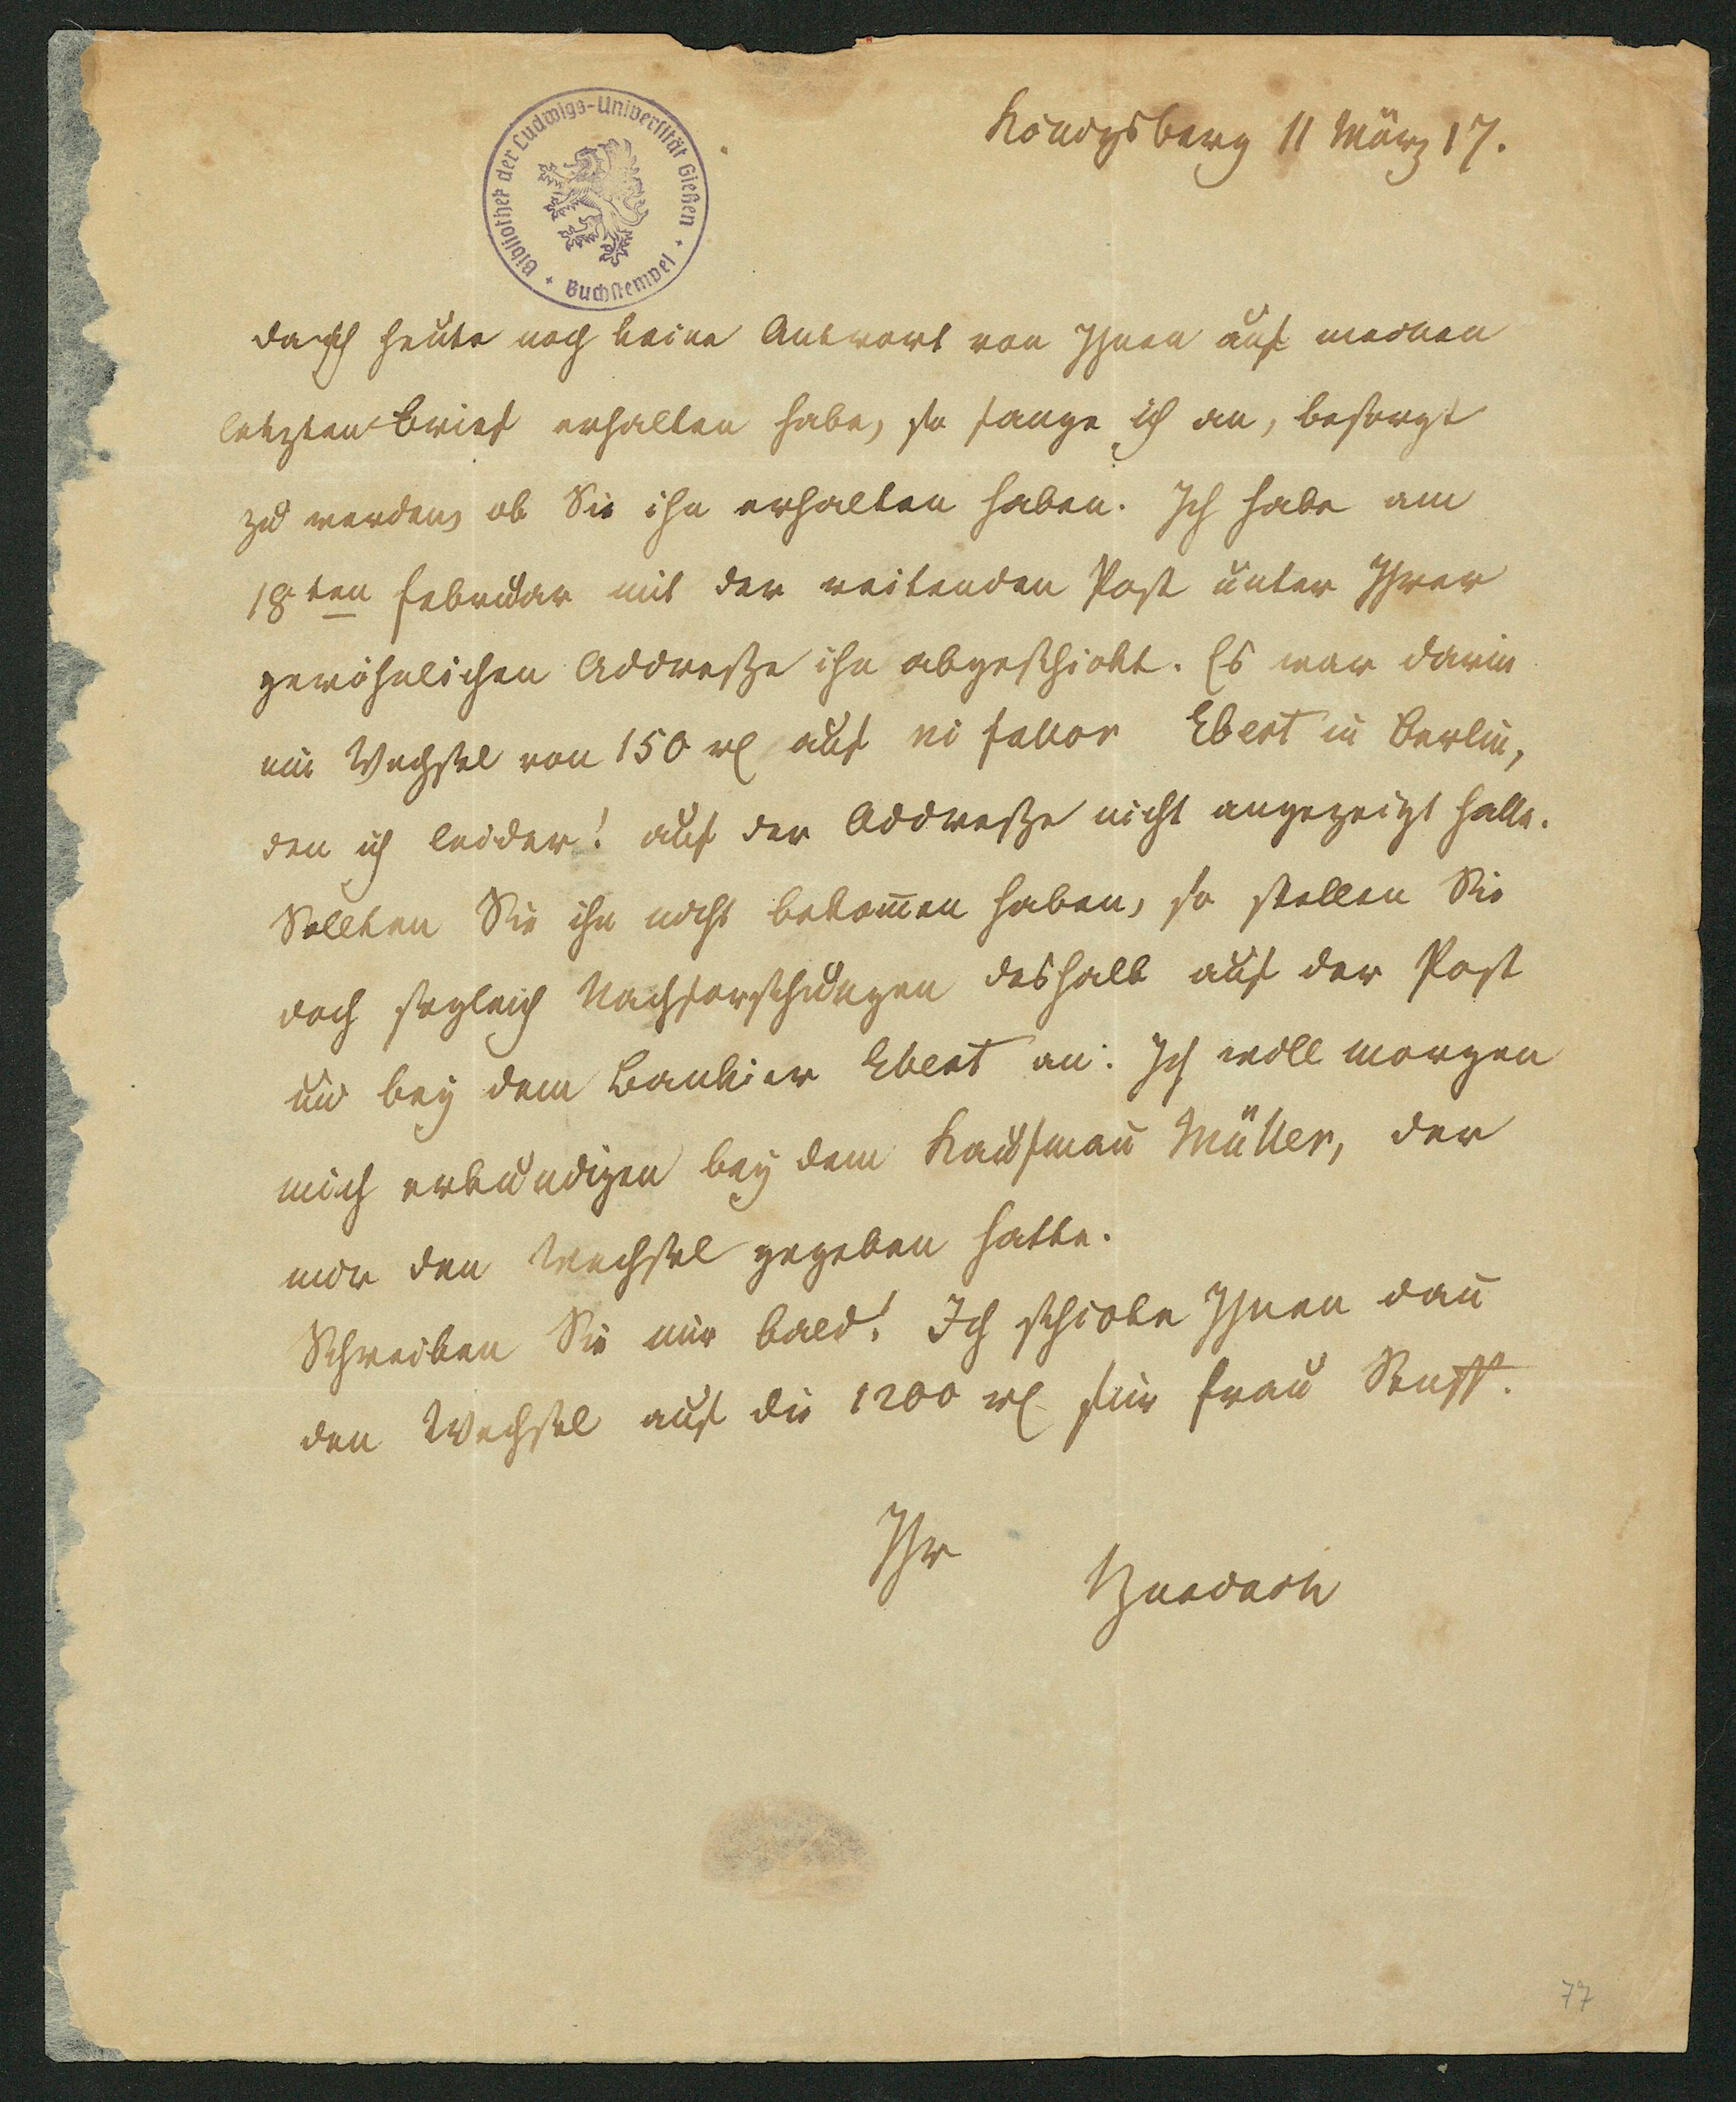 Bibliothek der Ludwigs-Universität Gießen
+ Buchstempel +
Königsberg 11 März 17.
Da ich heute noch keine Antwort von Ihnen auf meinen
letzten Brief erhalten habe, so fange ich an, besorgt
zu werden, ob Sie ihn erhalten haben. Ich habe am
18ten Februar mit der reitenden Post unter Ihrer
gewöhnlichen Addresse ihn abgeschickt. Es war darin
ein Wechsel von 150 rl auf Ebert in Berlin,
den ich leider! auf der Addresse nicht angezeigt hatte.
Sollten Sie ihn nicht bekom̄en haben, so stellen Sie
doch sogleich Nachforschungen deshalb auf der Post
und bey dem Bankier Ebert an. Ich will morgen
mich erkundigen bey dem Kaufman̄ Müller, der
mir den Wechsel gegeben hatte.
Schreiben Sie mir bald! Ich schicke Ihnen dan̄
den Wechsel auf die 1200 rl für Frau Senff.
Ihr
77